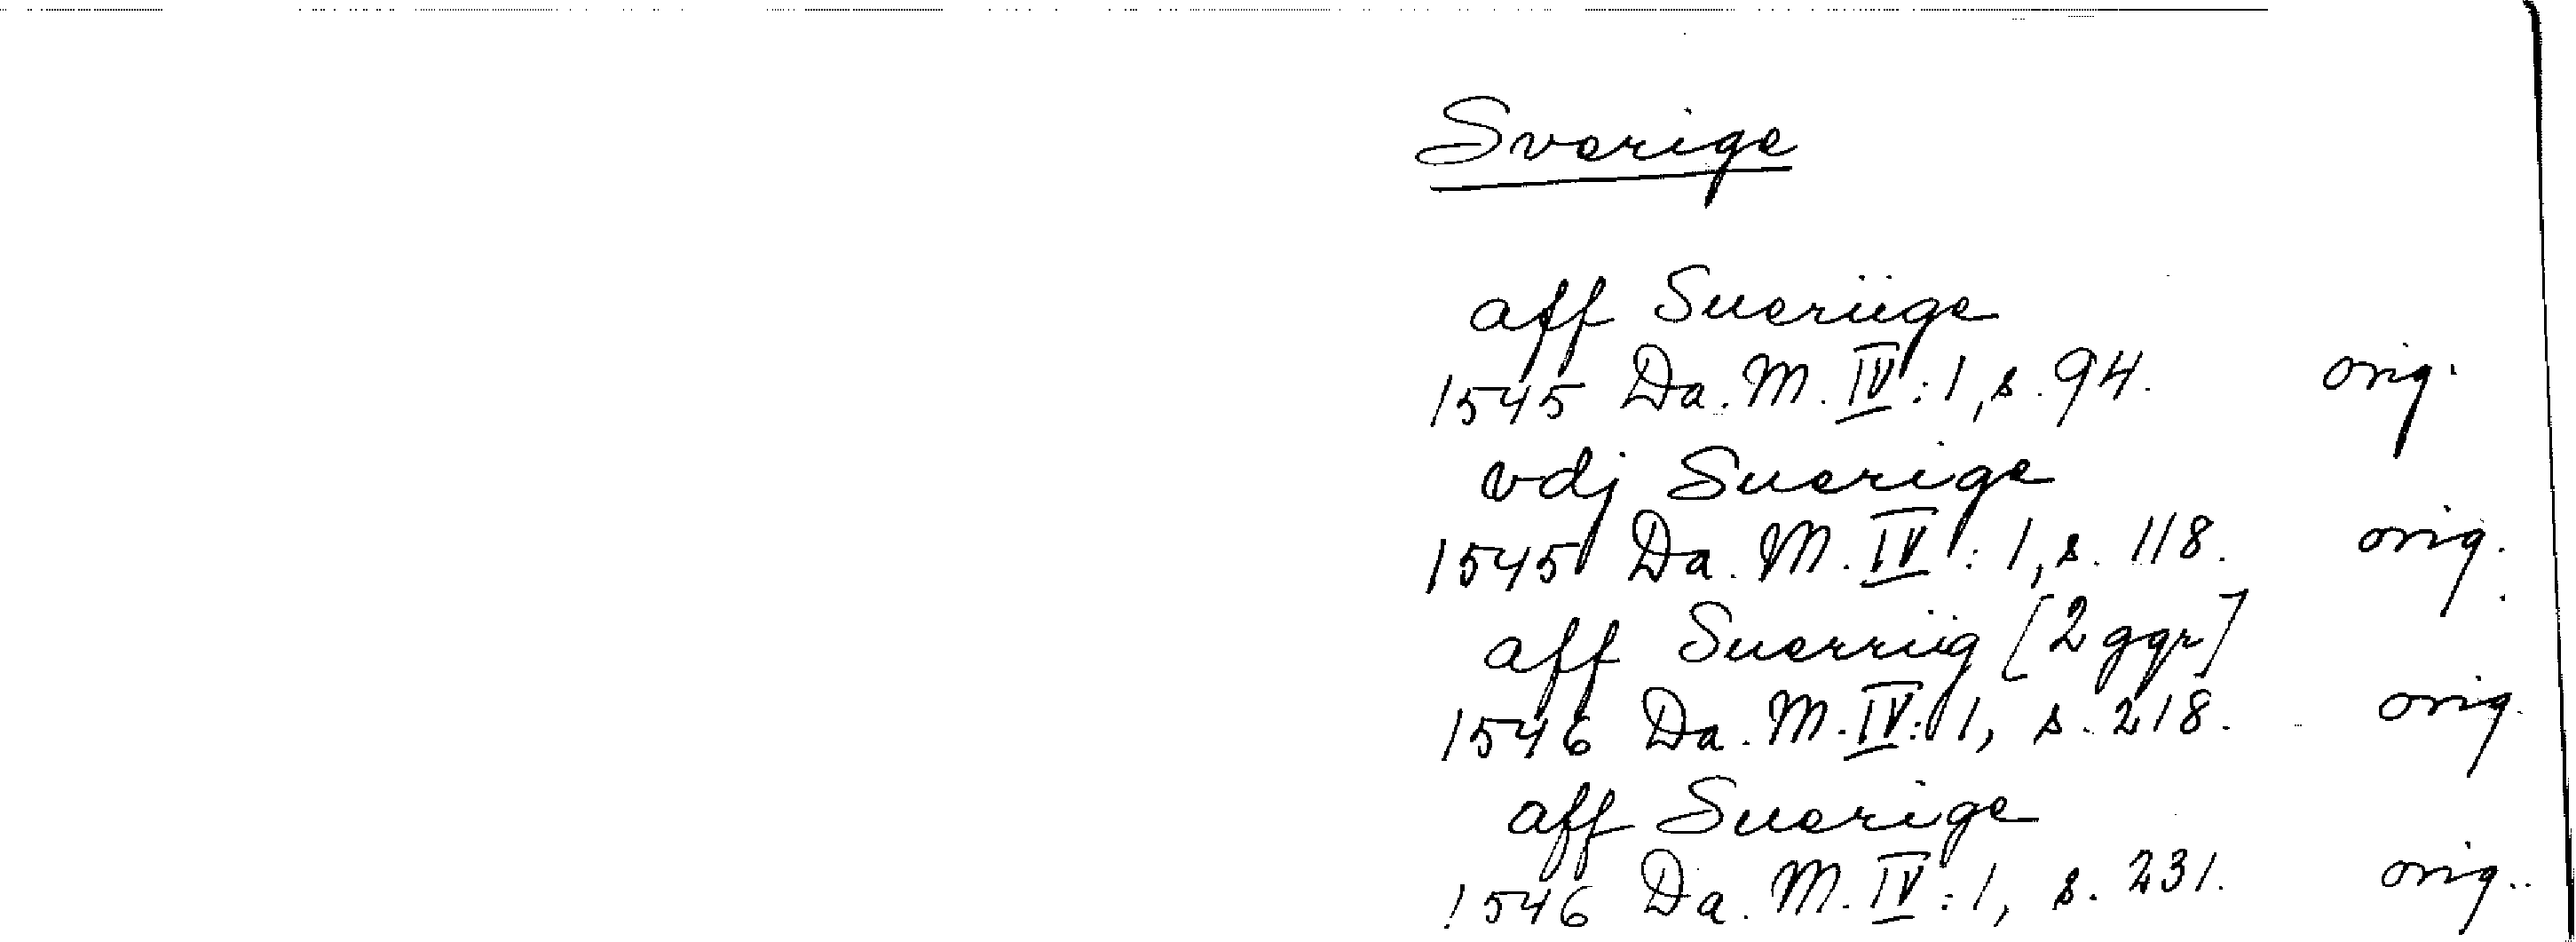 Sverige
aff Sueriige
1545 Da. M. IV:1, s. 94. orig.
vdj Suerige
1545 Da. M. IV:1, s. 118. orig.
aff Suerriig [2 ggr]
1546 Da. M. IV:1, s. 218. orig.
aff Suerige
1546 Da. M. IV:1, s. 231. orig.